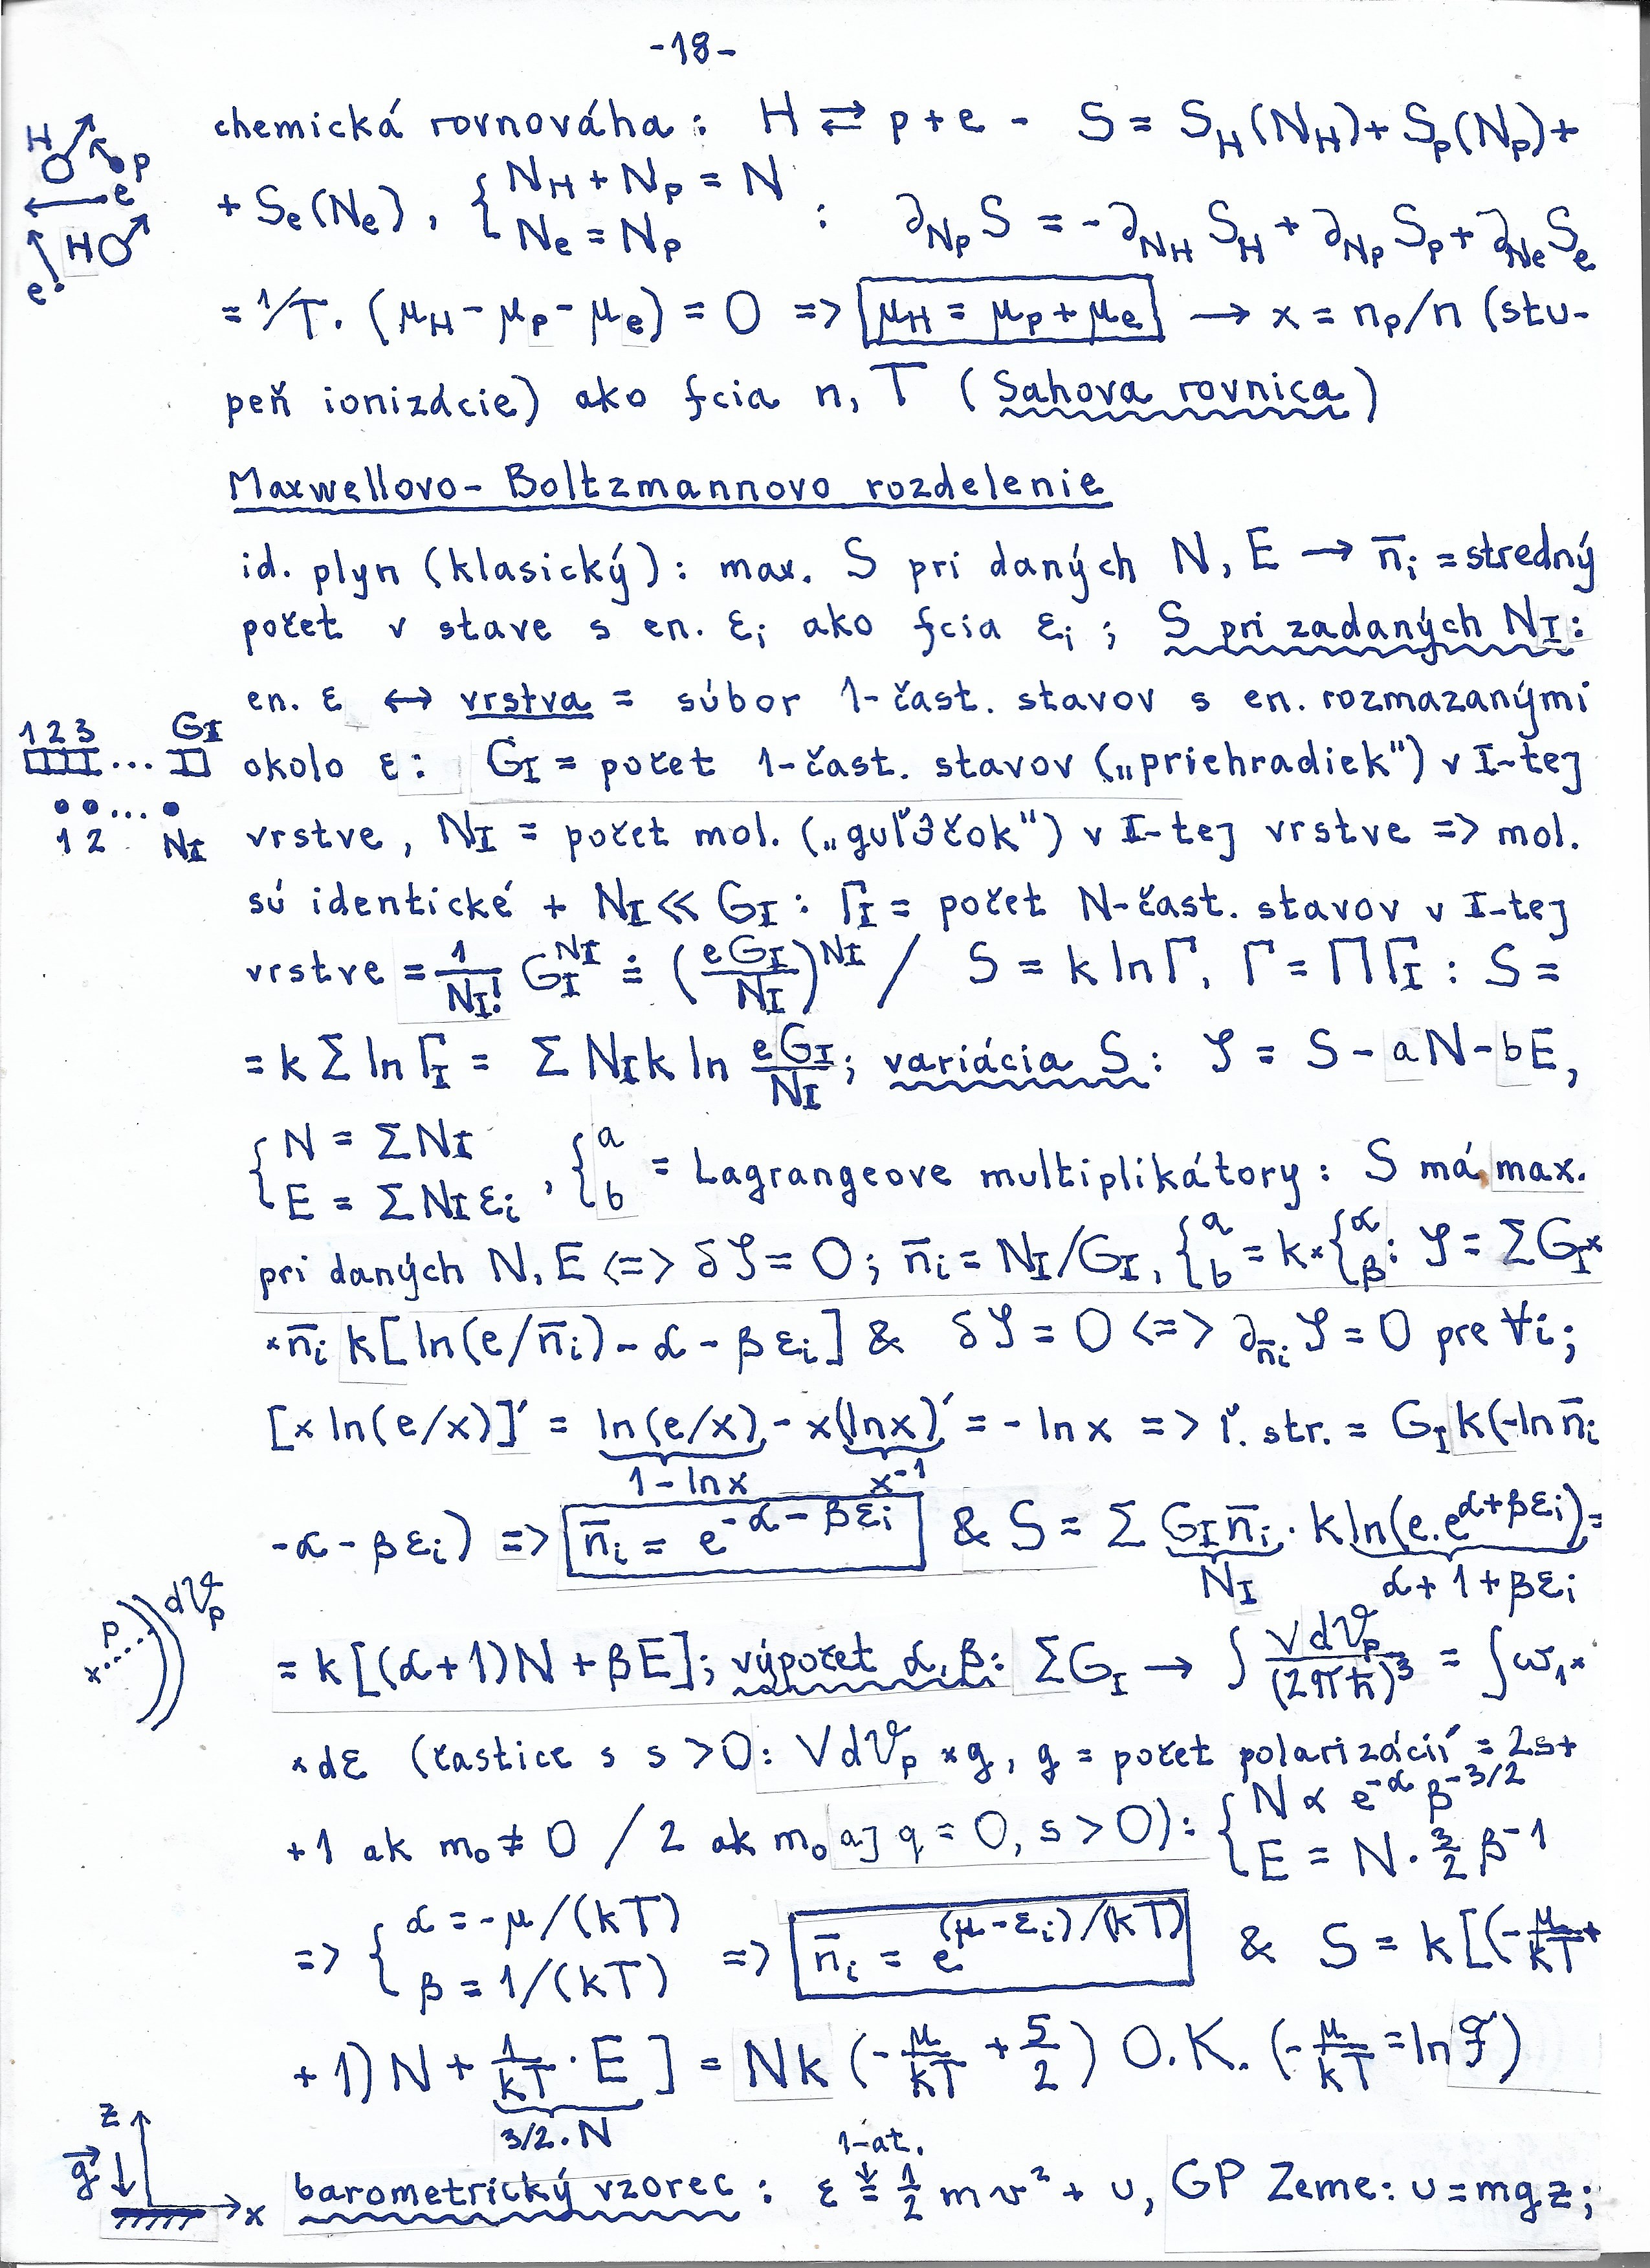 -18-
chemická rovnováha: H ⇄ p+e - S = S_H(N_H)+S_p(N_p)+
+S_e(N_e), { N_H+N_p = N
N_e = N_p : ∂_{N_p}S = -∂_{N_H}S_H+∂_{N_p}S_p+∂_{N_e}S_e
= 1/T.(μ_H-μ_p-μ_e) = 0 => μ_H = μ_p+μ_e → x = n_p/n (stu-
peň ionizácie) ako fcia n, T (Sahova rovnica)
H p e H e
Maxwellovo-Boltzmannovo rozdelenie
id. plyn (klasický): max. S pri daných N, E → n̄_i = stredný
počet v stave s en. ε_i ako fcia ε_i ; S pri zadaných N_I:
en. ε ↔ vrstva = súbor 1-čast. stavov s en. rozmazanými
okolo ε: G_I = počet 1-čast. stavov („priehradiek") v I-tej
vrstve, N_I = počet mol. („guľôčok") v I-tej vrstve => mol.
sú identické + N_I ≪ G_I : Γ_I = počet N-čast. stavov v I-tej
1 2 3 ... G_I
1 2 ... N_I
vrstve = 1/N_I! G_I^{N_I} ≐ (eG_I/N_I)^{N_I} / S = k lnΓ, Γ = ΠΓ_I : S =
= k Σ ln Γ_I = Σ N_I k ln eG_I/N_I; variácia S: 𝒮 = S - aN - bE,
{ N = ΣN_I
E = ΣN_Iε_i , { a
b = Lagrangeove multiplikátory: S má max.
pri daných N, E <=> δ𝒮 = 0; n̄_i = N_I/G_I, { a b = k× { α β : 𝒮 = ΣG_I×
×n̄_i k[ln(e/n̄_i) - α - βε_i] & δ𝒮 = 0 <=> ∂_{n̄_i}𝒮 = 0 pre ∀i;
[x ln(e/x)]' = ln(e/x) - x(lnx)' = -lnx => ľ. str. = G_I k(-ln n̄_i
1-lnx x^{-1}
-α-βε_i) => n̄_i = e^{-α-βε_i} & S = Σ G_I n̄_i · k ln(e.e^{α+βε_i}) =
N_I α+1+βε_i
= k[(α+1)N+βE]; výpočet α, β: ΣG_I → ∫ Vd𝒱_p/(2πħ)³ = ∫ω_1×
p x d𝒱_p
×dε (častice s s>0: Vd𝒱_p ×g, g = počet polarizácií = 2s+
+1 ak m_0 ≠ 0 / 2 ak m_0 aj q = 0, s>0): { N ∝ e^{-α} β^{-3/2}
E = N·3/2 β^{-1}
=> { α = -μ/(kT)
β = 1/(kT) => n̄_i = e^{(μ-ε_i)/(kT)} & S = k[(-μ/kT+
+1)N + 1/kT · E] = Nk(-μ/kT + 5/2) O.K. (-μ/kT = ln 𝒯)
3/2.N
z g⃗ x
1-at.
barometrický vzorec: ε = 1/2 mv² + u, GP Zeme: u = mgz;